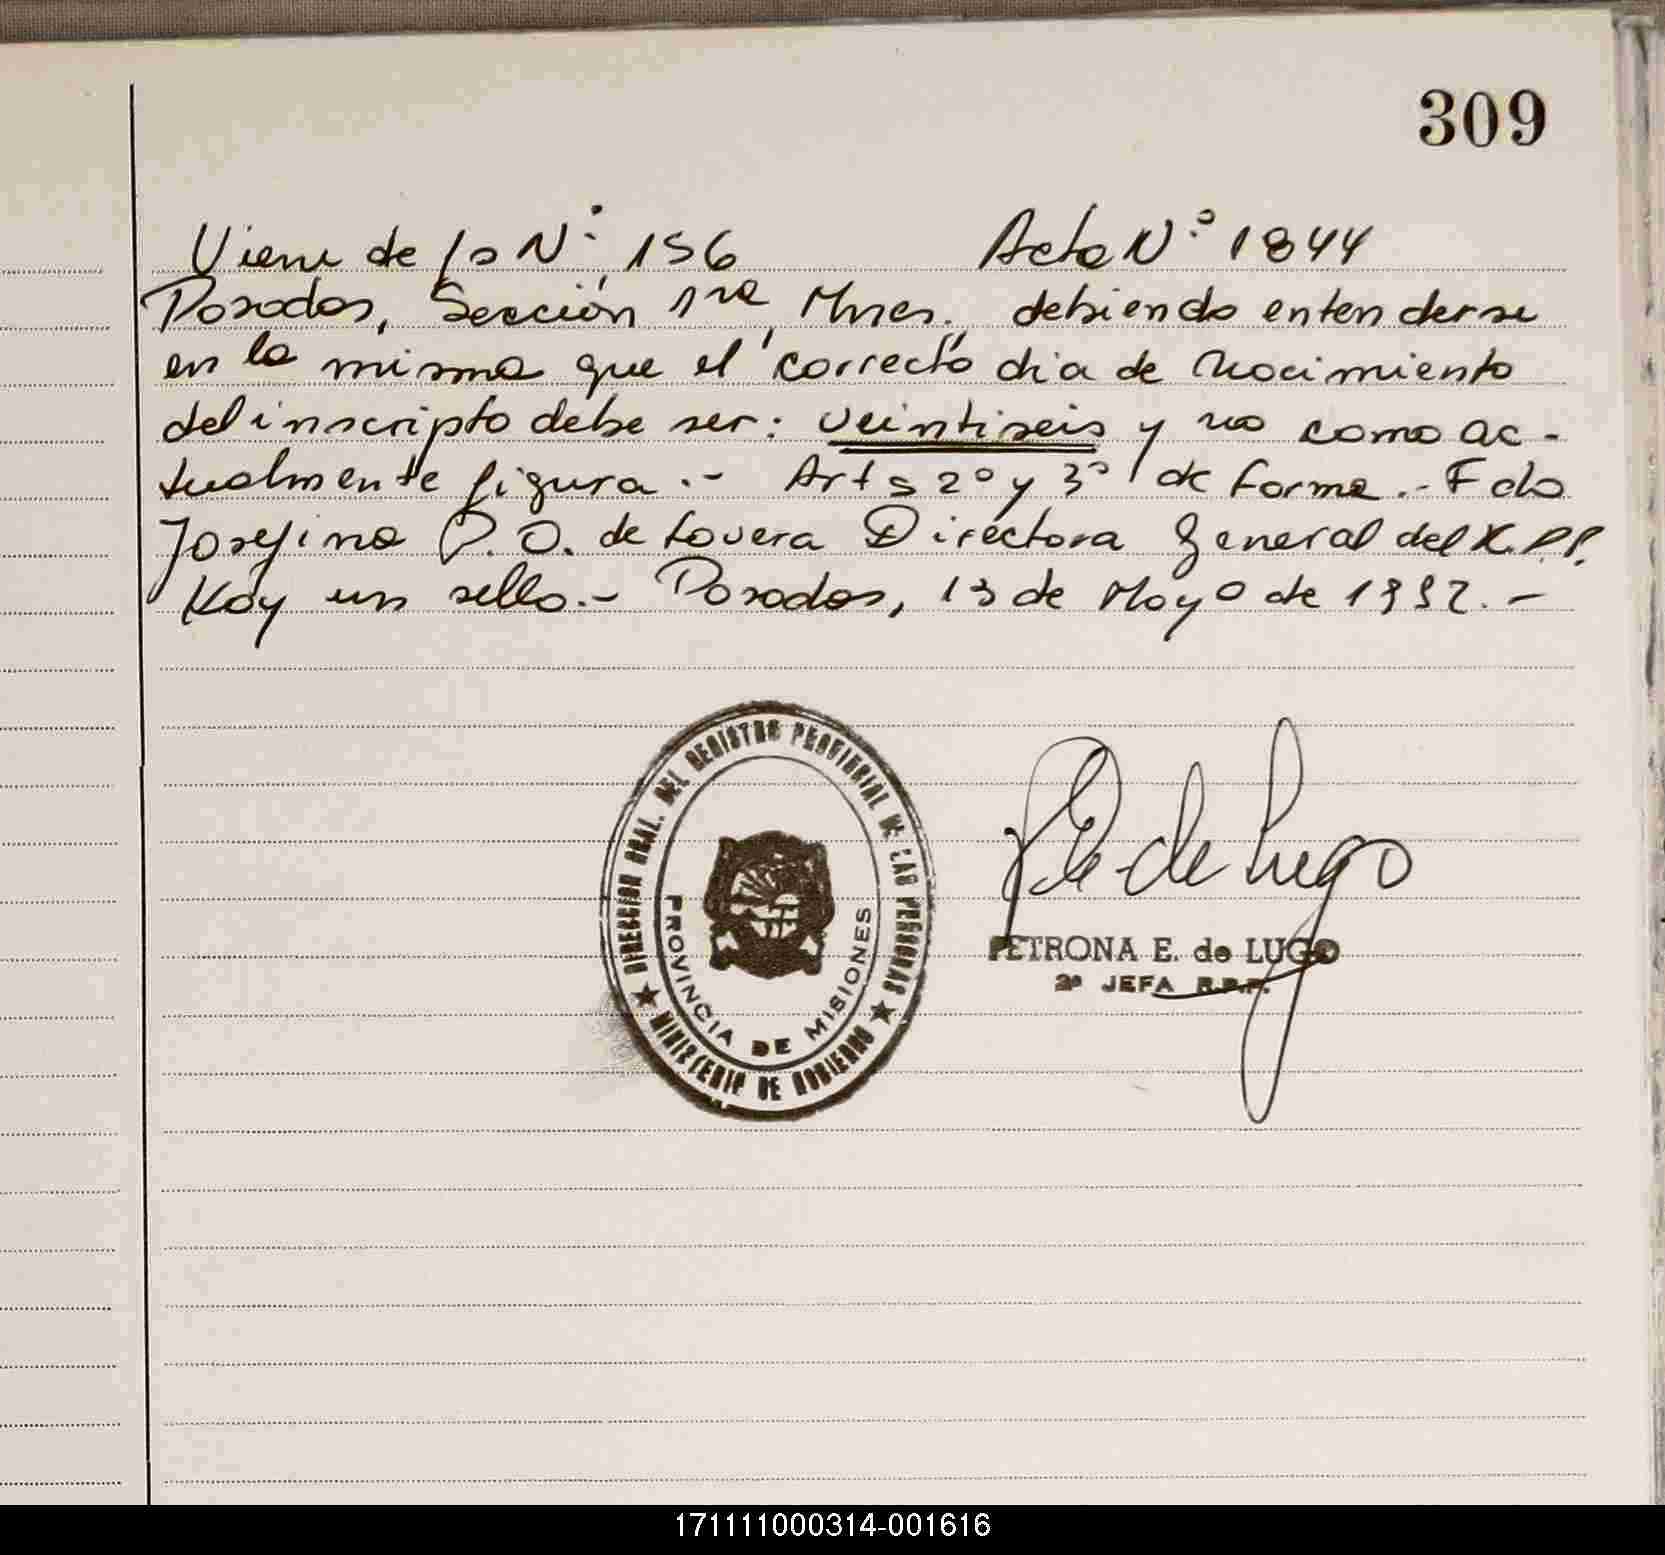 309
Viene de fo Nº 156 Acta Nº 1844
Posadas, Sección 1ra, Mnes., debiendo entenderse
en la misma que el correcto dia de nacimiento
del inscripto debe ser: veintiseis y no como ac-
tualmente figura.- Arts 2º y 3º de forma.- Fdo
Josefina P. O. de Lovera Directora General del R.P.P.
Hay un sello.- Posadas, 13 de Mayo de 1992.-
DIRECCION GRAL. DEL REGISTRO PROVINCIAL DE LAS PERSONAS
PROVINCIA DE MISIONES
MINISTERIO DE GOBIERNO
PE de Lugo
PETRONA E. de LUGO
2ª JEFA R.P.P.
171111000314-001616